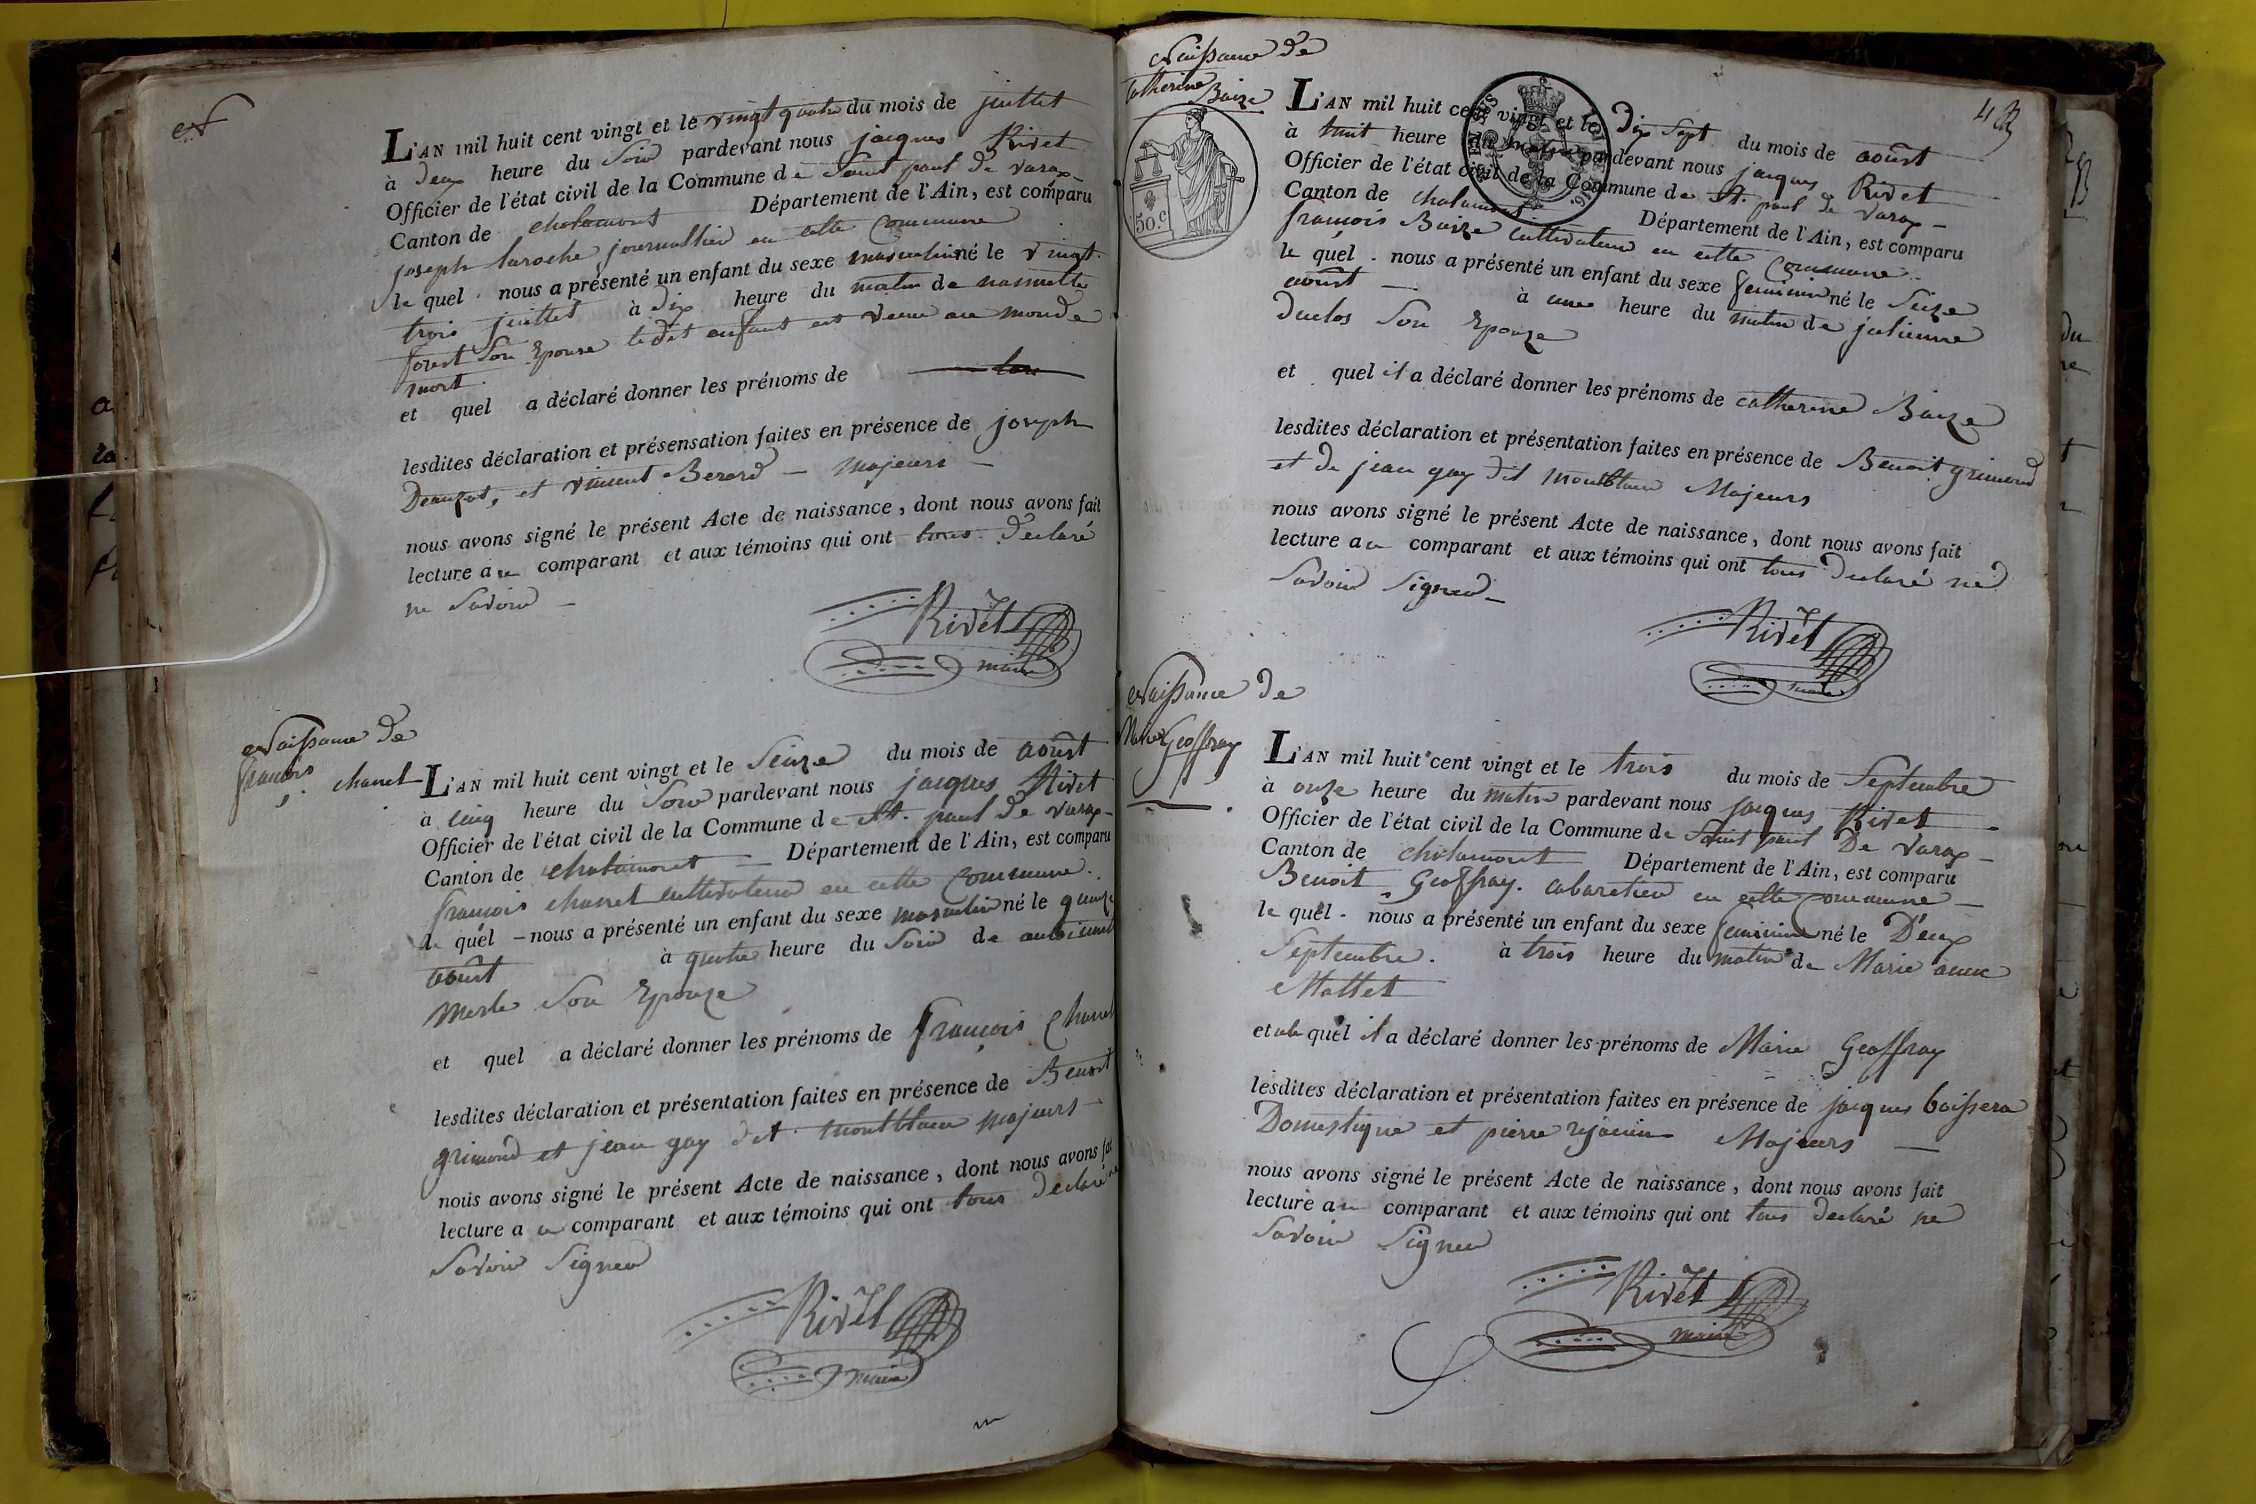 L'AN mil huit cent vingt et le vingt quatre du mois de juillet
à deux heure du Soir pardevant nous jacques Rivet
Officier de l'état civil de la Commune de Saint paul de varax
Canton de chalamont Département de l'Ain, est comparu
joseph laroche journallier en cette Commune
le quel nous a présenté un enfant du sexe masculin né le vingt
trois juillet à dix heure du matin de
forest Son Epouse ledit enfant est venu au monde
mort
et quel a déclaré donner les prénoms de
lesdites déclaration et présensation faites en présence de joseph
et vincent Berard - Majeurs -
nous avons signé le présent Acte de naissance, dont nous avons fait
lecture au comparant et aux témoins qui ont tous declaré
ne Savoir -
Rivet
maire
Naissance de
françois chanel
L'AN mil huit cent vingt et le Seize du mois de aoûst
à cinq heure du Soir pardevant nous jacques Rivet
Officier de l'état civil de la Commune de St. paul de varax -
Canton de chalamont Département de l'Ain, est comparu
françois chanel cultivateur en cette Commune.
le quel - nous a présenté un enfant du sexe masculin né le quinze
aoûst à quatre heure du Soir de
merle Son Epouze
et quel a déclaré donner les prénoms de françois Chanel
lesdites déclaration et présentation faites en présence de Benoit
grimond et jean gay dit montblanc majeurs -
nous avons signé le présent Acte de naissance, dont nous avons fai
lecture au comparant et aux témoins qui ont tous declaré ne
Savoir Signer
Rivet
maire
Naissance de
Catherine
Baize
4
50.c
L'AN mil huit cent vingt et le Dix Sept du mois de aoûst
à huit heure du matin pardevant nous jacques Rivet
Officier de l'état civil de la Commune de St. paul de varax -
Canton de chalamont Département de l'Ain, est comparu
françois Baize cultivateur en cette Commune -
le quel . nous a présenté un enfant du sexe feminin né le Seize
aoûst - à une heure du matin de julienne
duclos Son Epouze
et quel il a déclaré donner les prénoms de catherine Baize
lesdites déclaration et présentation faites en présence de Benoit grimond
et de jean gay dit montblanc Majeurs
nous avons signé le présent Acte de naissance, dont nous avons fait
lecture au comparant et aux témoins qui ont tous declaré ne
Savoir Signer -
Rivet
maire
Naissance de
Marie Geoffray
L'AN mil huit cent vingt et le trois du mois de Septembre
à onze heure du matin pardevant nous jacques Rivet
Officier de l'état civil de la Commune de Saint paul De varax -
Canton de chalamont Département de l'Ain, est comparu
Benoit Geoffray. cabaretier en cette Commune -
le quel - nous a présenté un enfant du sexe feminin né le Deux
Septembre. à trois heure du matin de Marie anne
Mallet
et au quel il a déclaré donner les prénoms de Marie Geoffray
lesdites déclaration et présentation faites en présence de jacques boissera
Domestique et pierre Majeurs -
nous avons signé le présent Acte de naissance, dont nous avons fait
lecture au comparant et aux témoins qui ont tous declaré ne
Savoir Signer
Rivet
maire